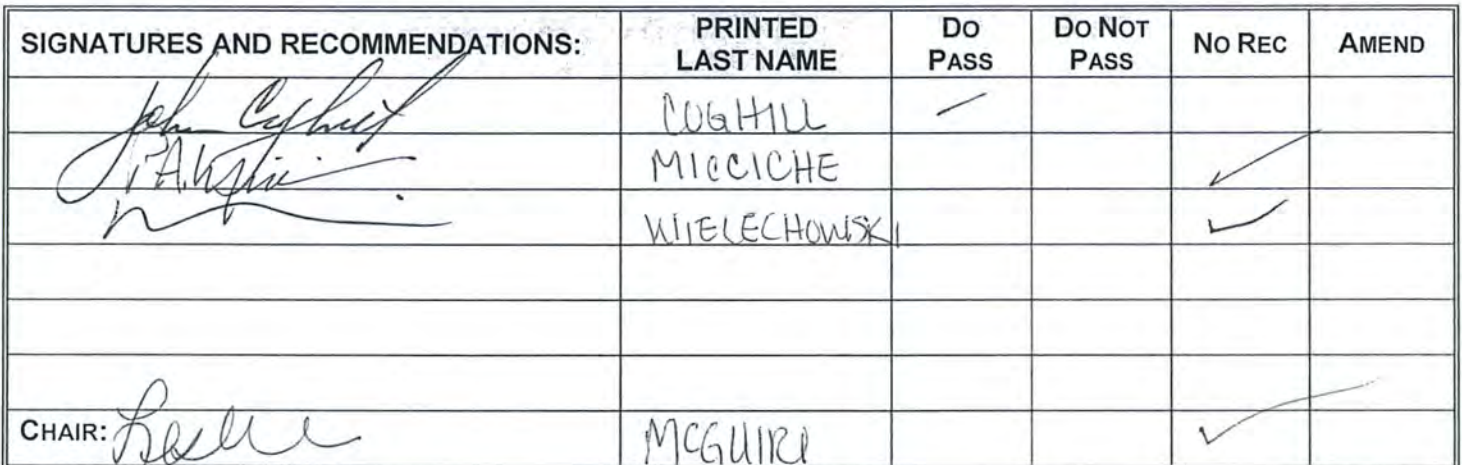 SIGNATURES AND RECOMMENDATIONS: PRINTED LAST NAME DO PASS DO NOT PASS NO REC AMEND
John COGHILL
MICCICHE
WIELECHOWSKI
CHAIR: Lesil MCGUIRE